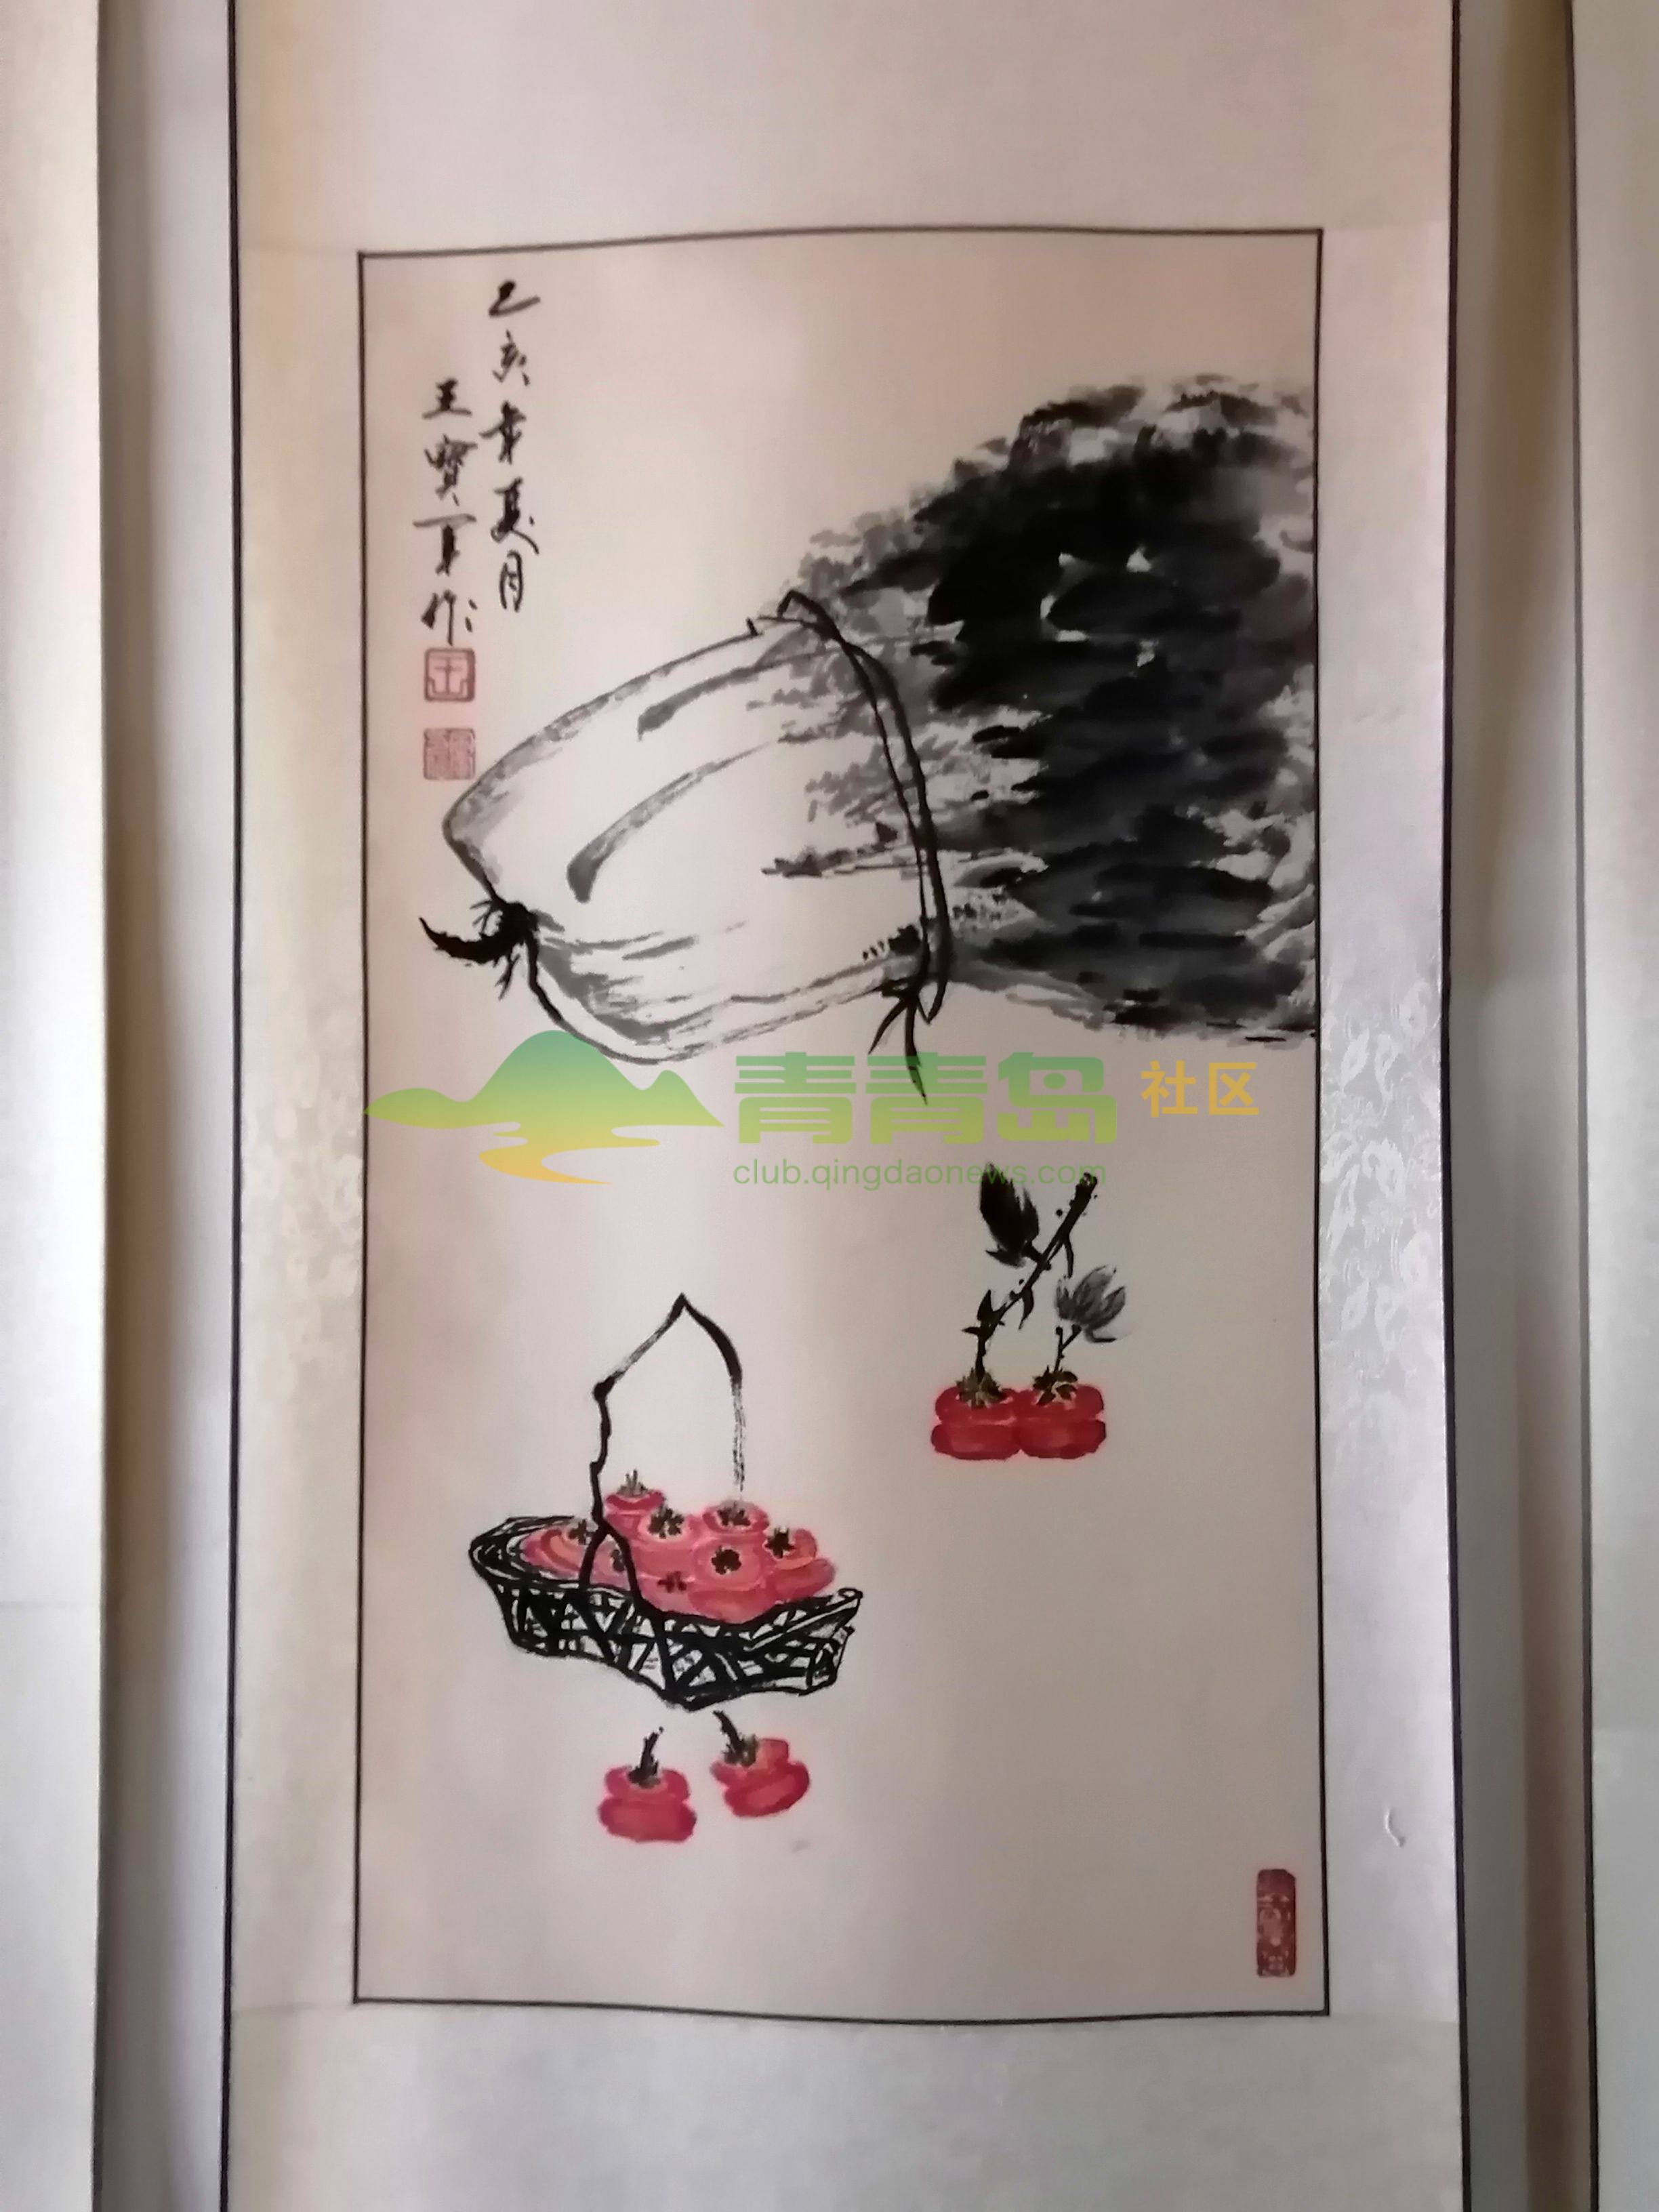 己亥年夏月
王寳軍作
王
青青岛 社区
club.qingdaonews.com